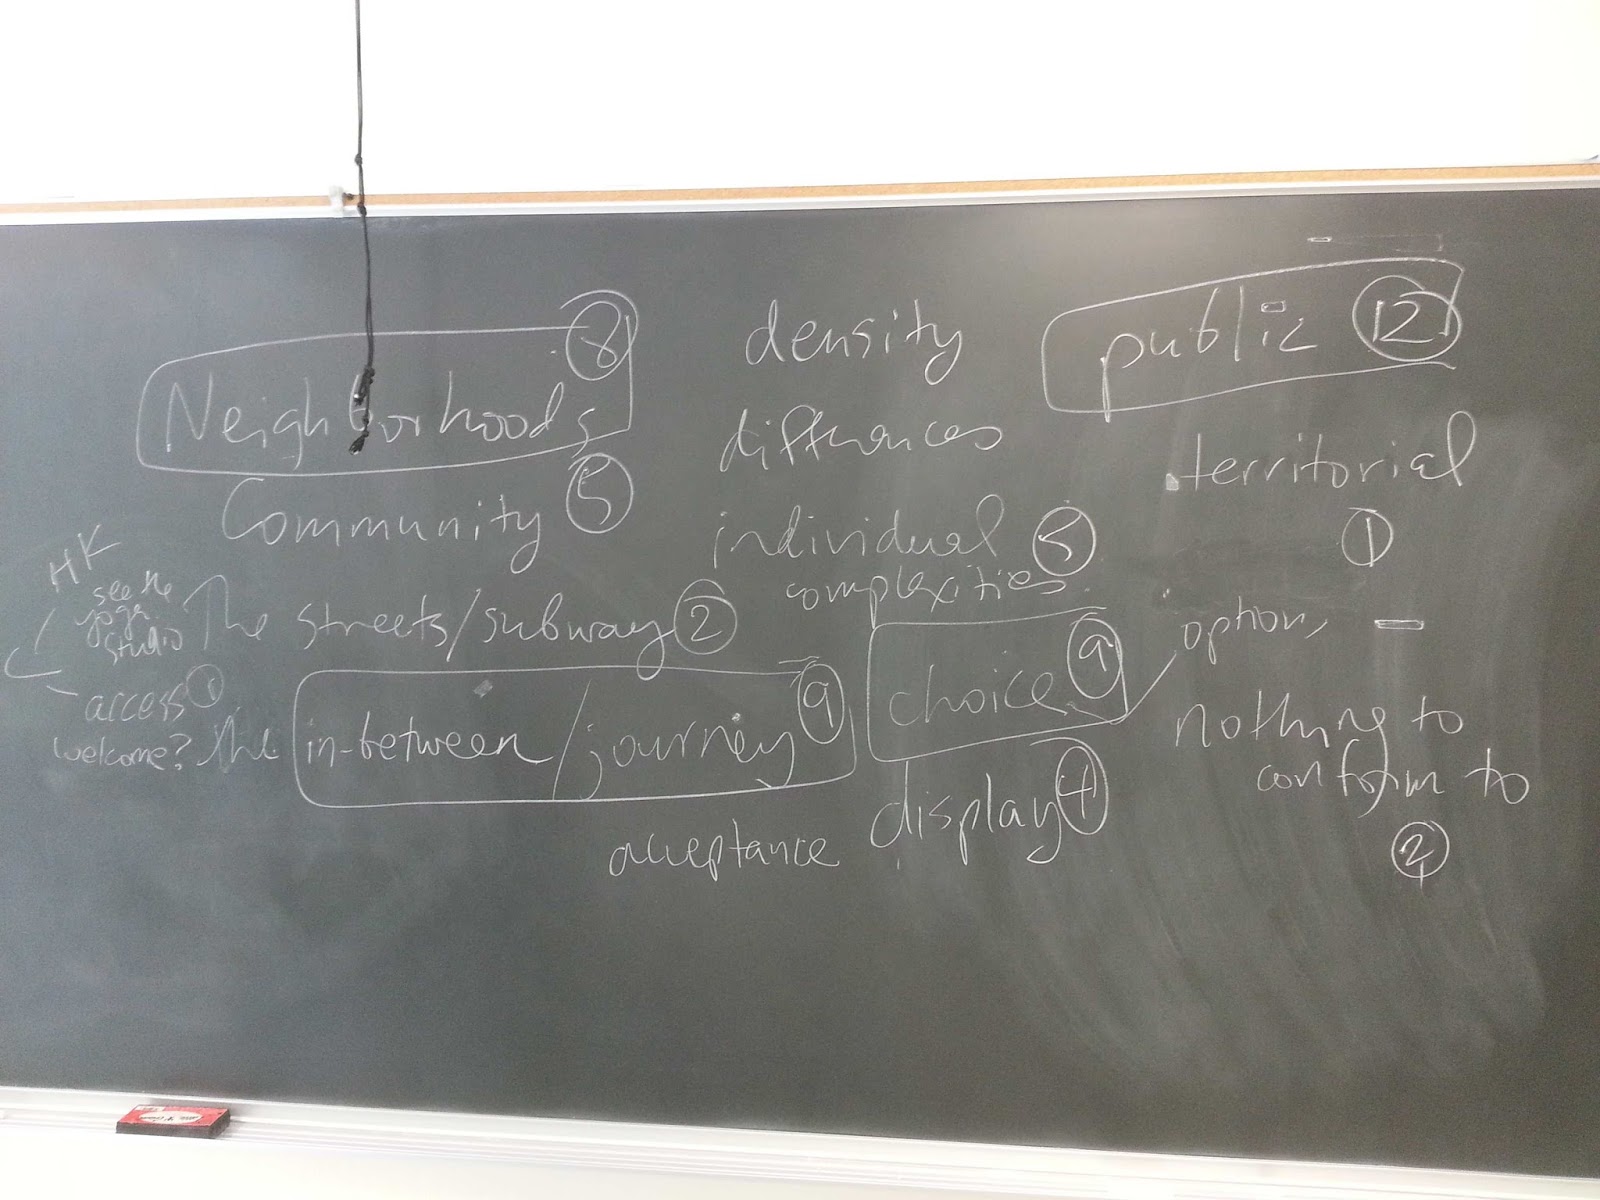 Neighborhoods 8
Community 5
HK
see the
yoga
studio
access 1
welcome?
The streets/subway 2
the in-between/journey 9
acceptance
density
differences
individual 5
complexities
choice 9
display 4
public 12
territorial
1
options
nothing to
conform to
2